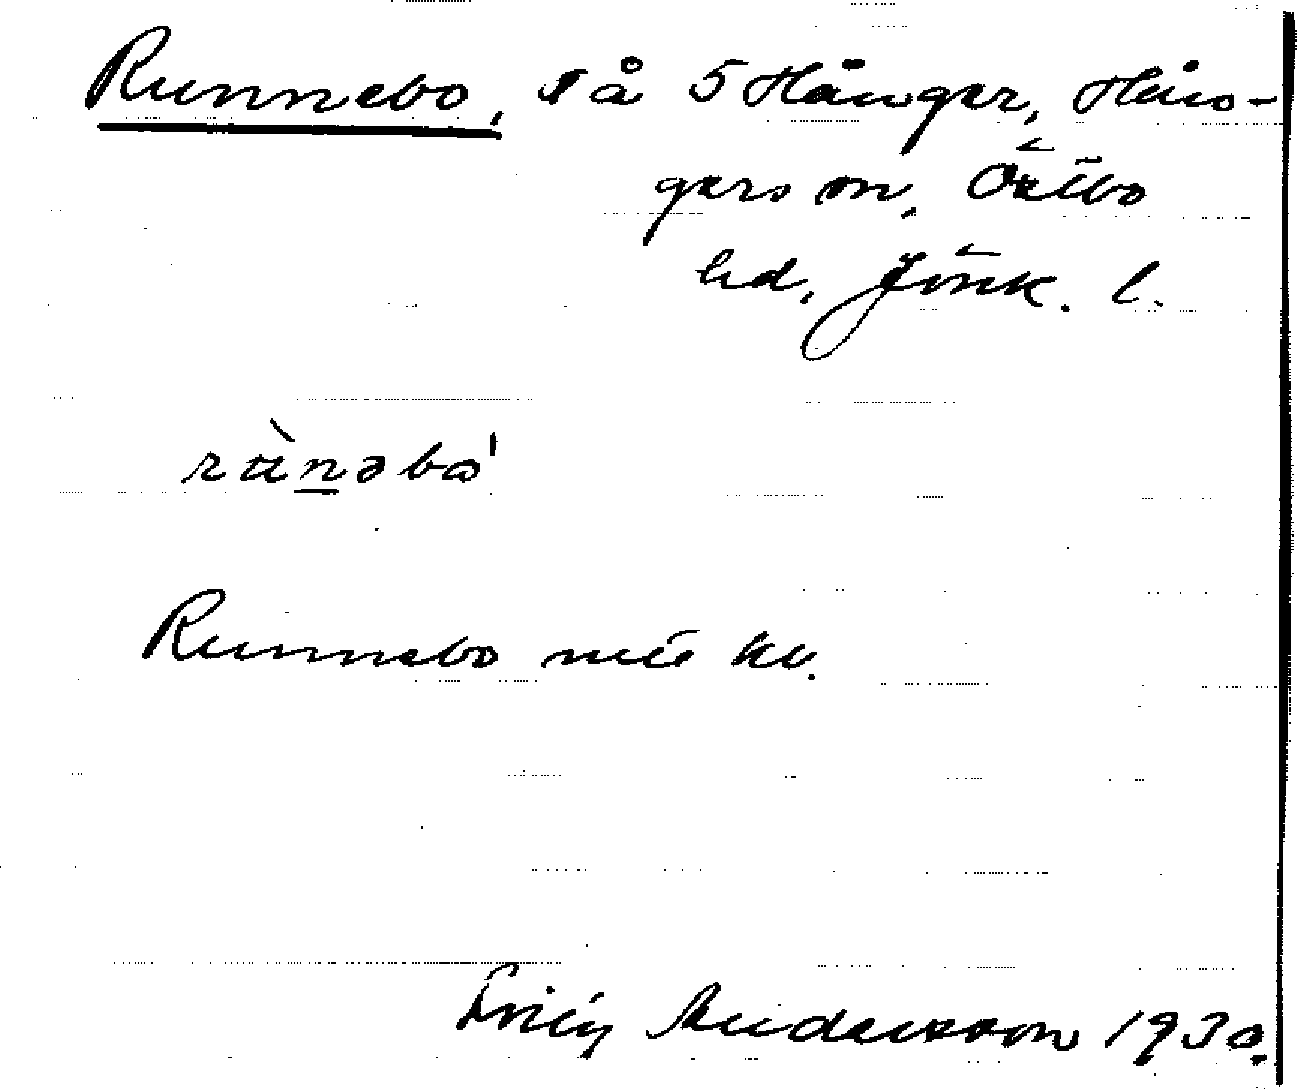 Runnebo, på 5 Hånger, Hån-
gers sn, Östbo
hd, Jönk. l.
rùnəbo'
Runnebo mit kv.
Andersson 1930.